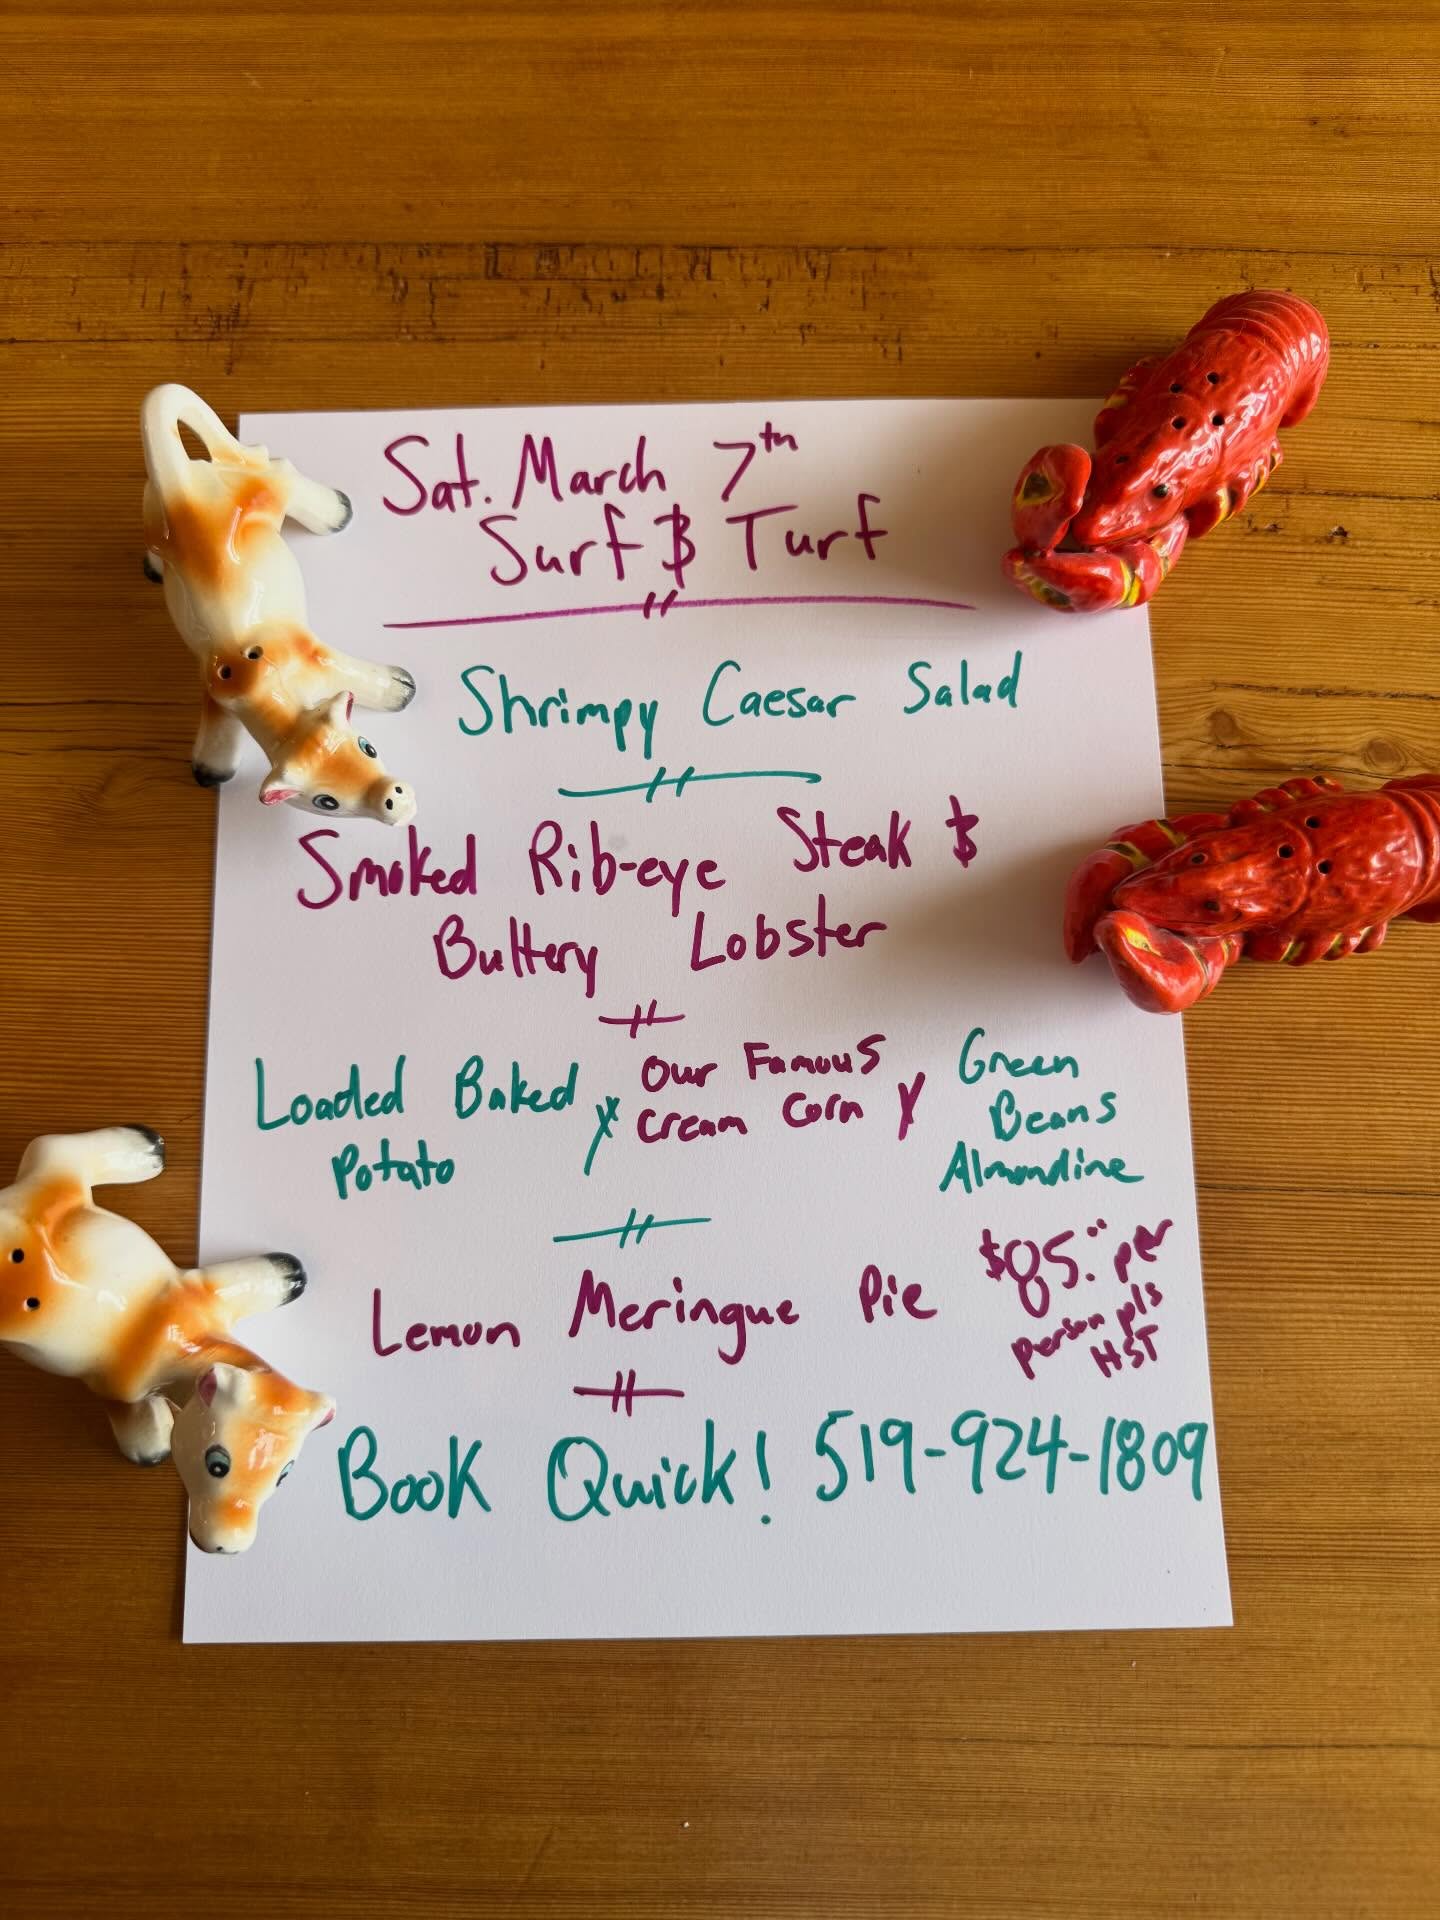 Sat. March 7th
Surf & Turf
Shrimpy Caesar Salad
Smoked Rib-eye Steak &
Buttery Lobster
Loaded Baked
Potato
Our Famous
Cream Corn
Green
Beans
Almondine
Lemon Meringue Pie
$85.00 per
person pls
HST
Book Quick! 519-924-1809